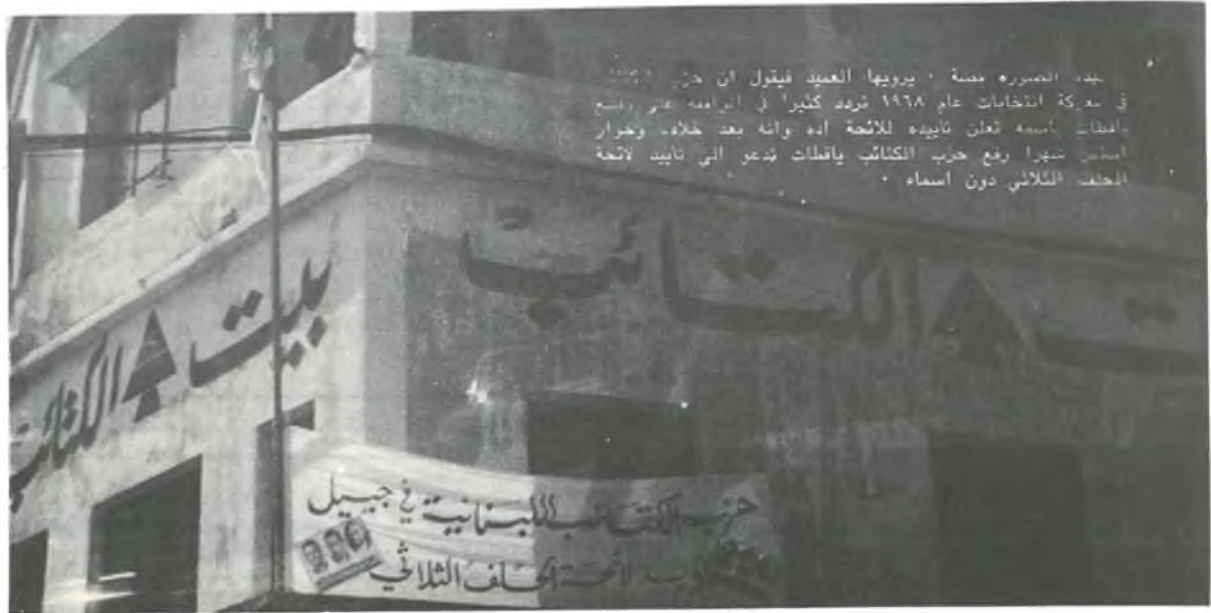 لهذه الصوره قصة ٠ يرويها العميد فيقول ان حزب
في معركة انتخابات عام ١٩٦٨ تردد كثيرا في الموافقة على رفع
يافطات باسمه تعلن تأييده للائحة اده وانه بعد خلاف وحوار
شهرا رفع حزب الكتائب يافطات تدعو الى تأييد لائحة
الحلف الثلاثي دون اسماء ٠
بيت الكتائب
ت الكتائب
حزب الكتائب اللبنانية في جبيل
لائحة الحلف الثلاثي